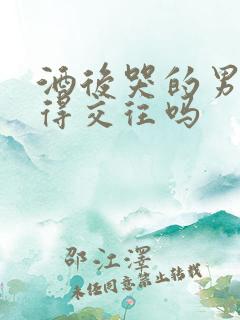 酒後哭的男
得交往吗
邵江澤
未经同意禁止转载